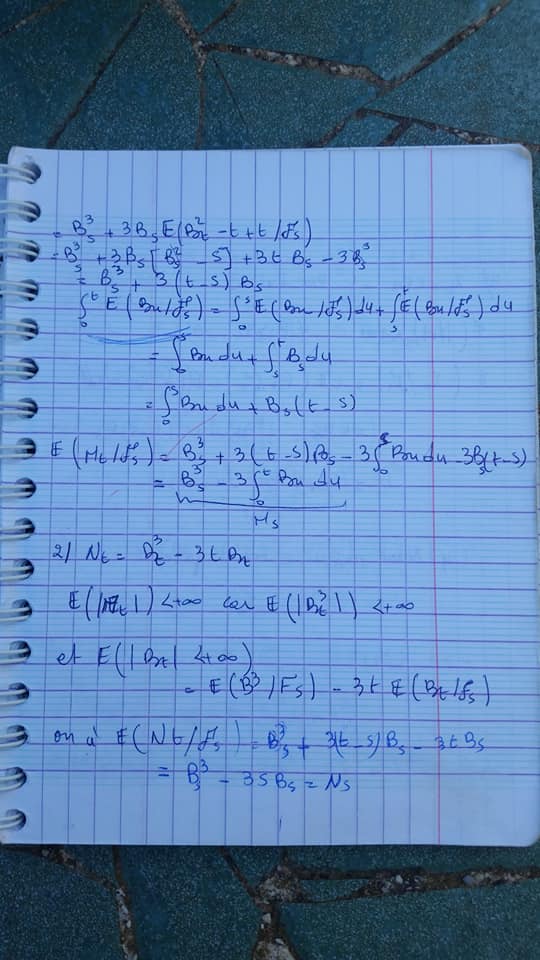 = B_s^3 + 3B_s E(B_t^2 - t + t / F_s)
= B_s^3 + 3B_s [B_s^2 - s] + 3t B_s - 3B_s^3
= B_s^3 + 3(t-s) B_s
∫_0^t E(Bu/F_s) = ∫_0^s E(Bu/F_s) du + ∫_s^t E(Bu/F_s) du
= ∫_0^s Bu du + ∫_s^t B_s du
= ∫_0^s Bu du + B_s(t-s)
E(M_t/F_s) = B_s^3 + 3(t-s)B_s - 3∫_0^s Bu du - 3B_s(t-s)
= B_s^3 - 3∫_0^t Bu du
M_s
2) N_t = B_t^3 - 3t B_t
E(|N_t|) < +∞ car E(|B_t^3|) < +∞
et E(|B_t| < +∞)
= E(B^3/F_s) - 3t E(B_t/F_s)
on a E(N_t/F_s) = B_s^3 + 3(t-s)B_s - 3tB_s
= B_s^3 - 3sB_s = N_s